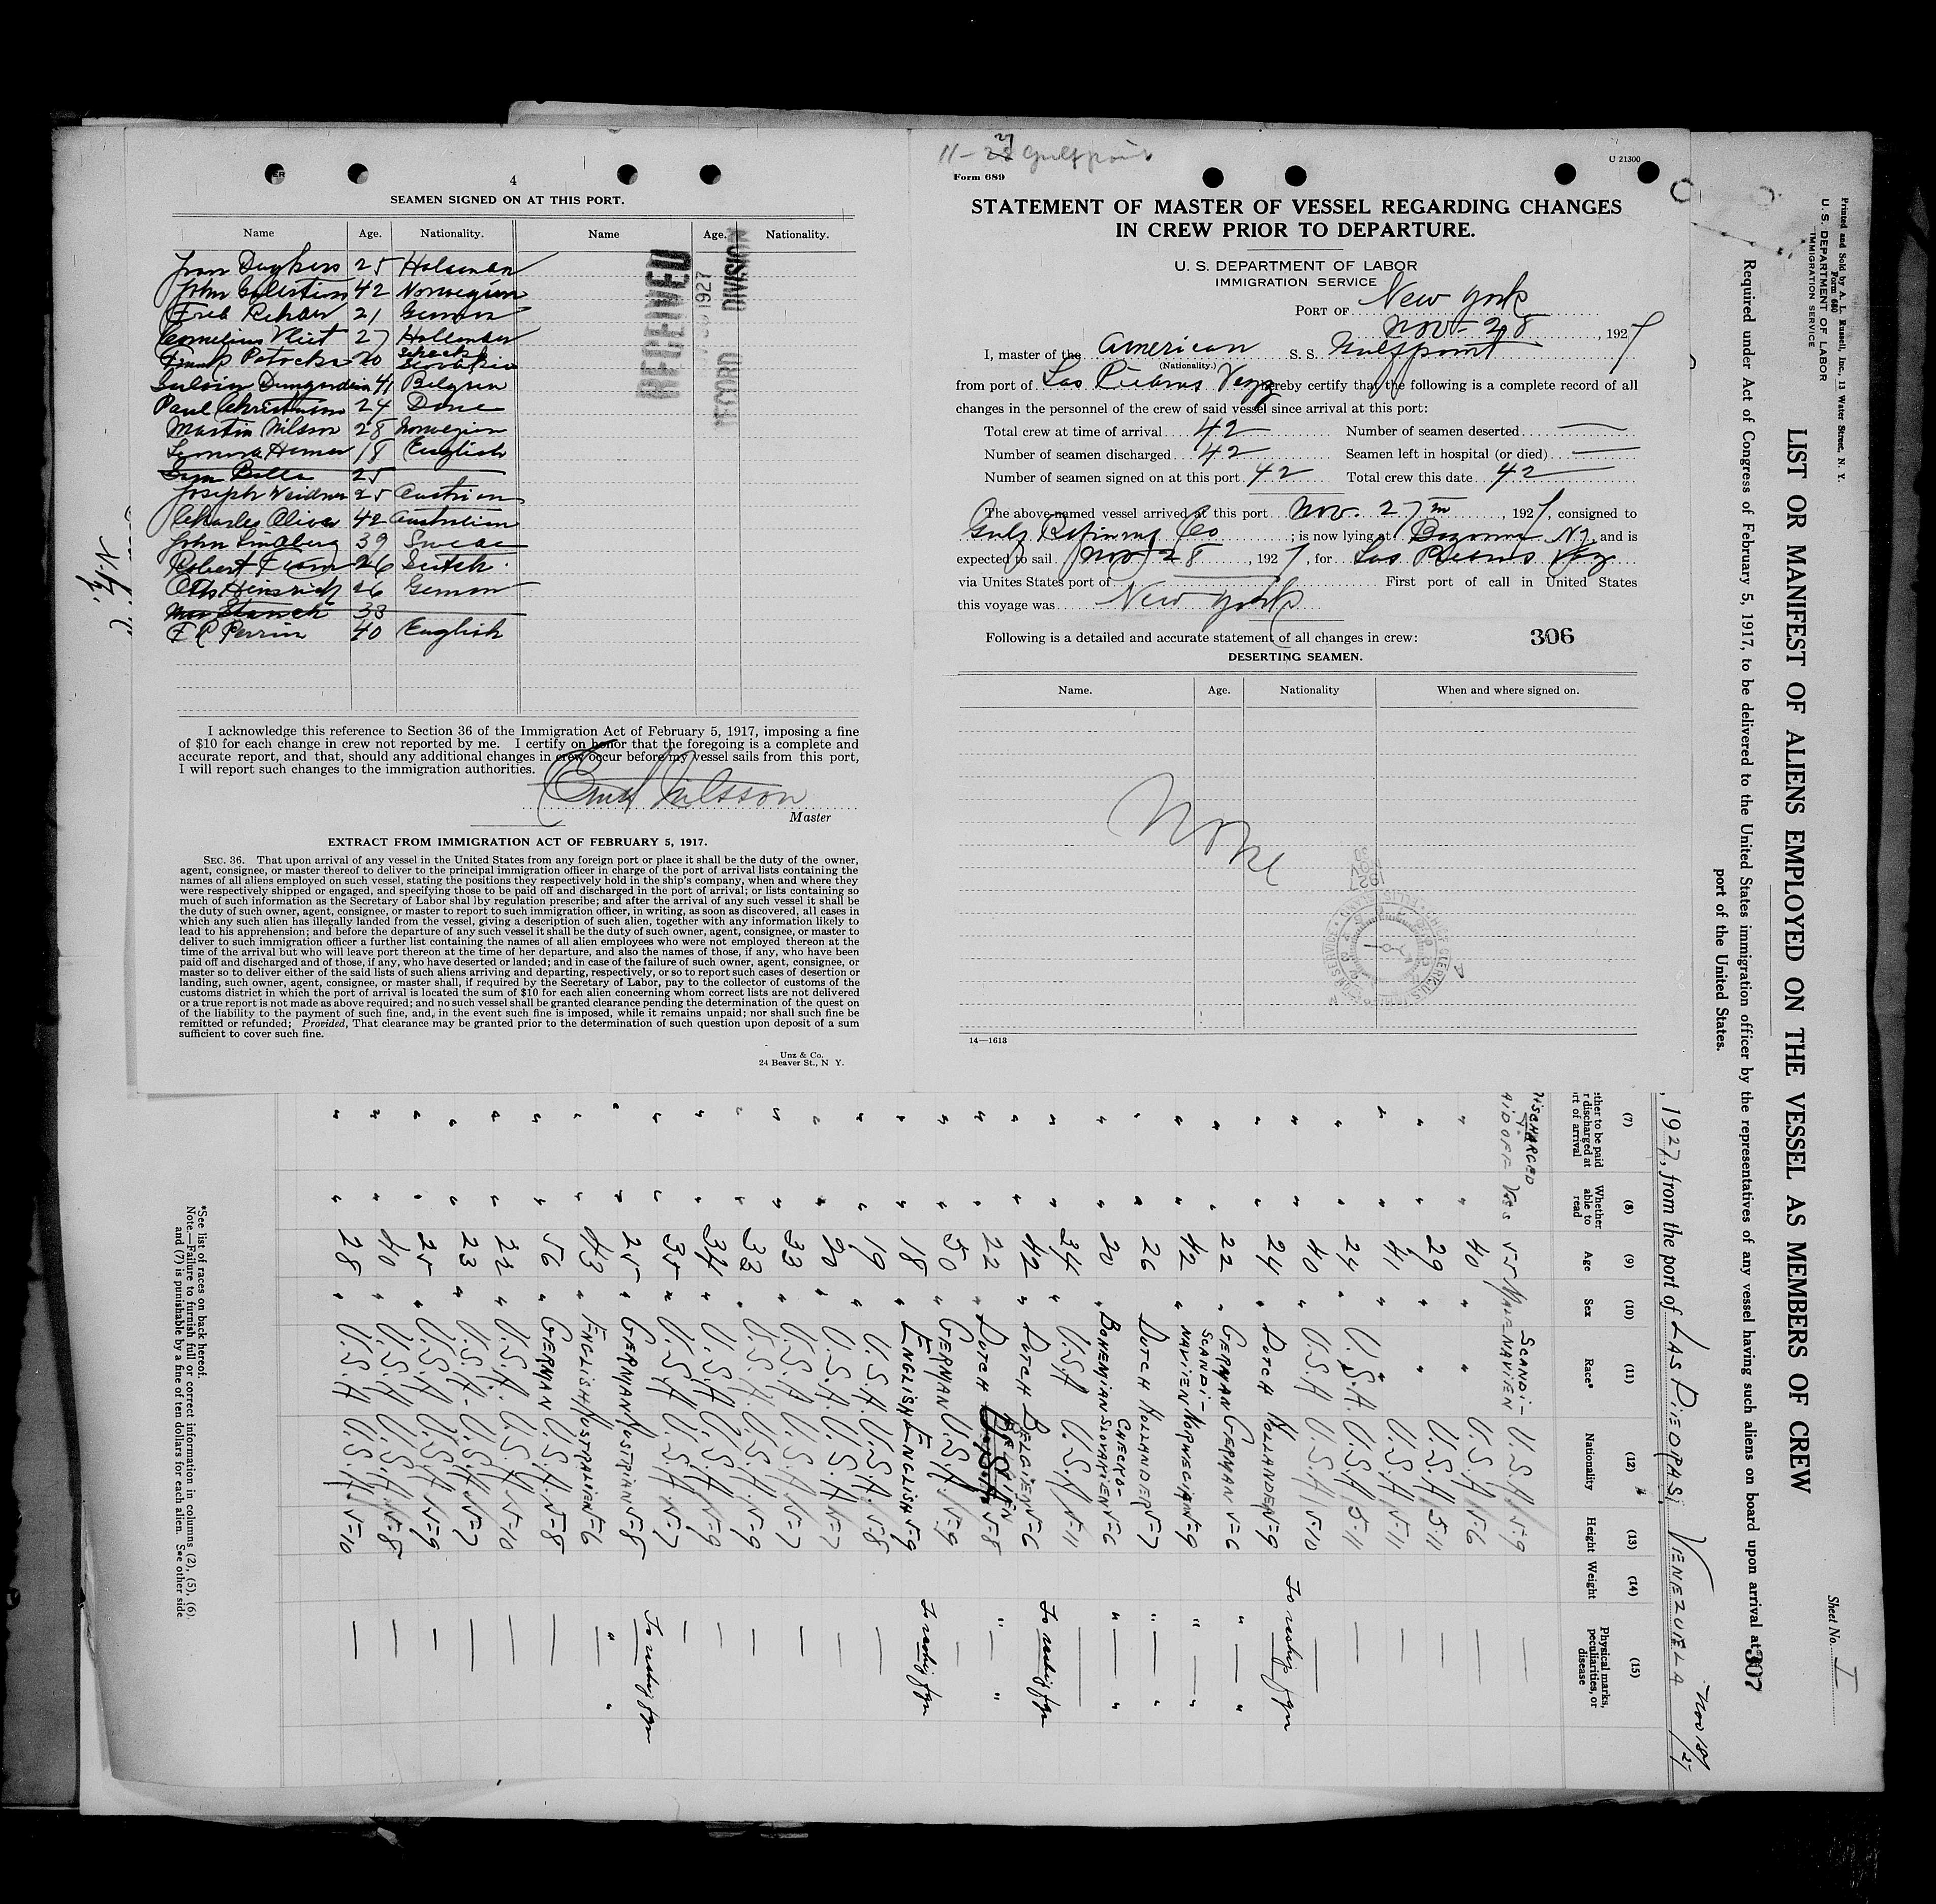 4
SEAMEN SIGNED ON AT THIS PORT.
Name Age. Nationality. Name Age. Nationality.
25
John 42 Norwegian
Fred 21 German
Cornelius Vliet 27 Hollander
Frank Potocka 20 Slovakia
41 Belgien
Paul Christensen 24 Dane
Martin Nilsson 28 Norwegian
18 English
25
Joseph Weidner 25 Austrian
Charles Oliver 42 Australian
John Lindberg 39 Swede
Robert 26 Dutch
Otto Heinrich 26 German
33
F R Perrin 40 English
RECEIVED
1927
RECORD DIVISION
I acknowledge this reference to Section 36 of the Immigration Act of February 5, 1917, imposing a fine
of $10 for each change in crew not reported by me. I certify on honor that the foregoing is a complete and
accurate report, and that, should any additional changes in crew occur before my vessel sails from this port,
I will report such changes to the immigration authorities.
Nilsson
Master
EXTRACT FROM IMMIGRATION ACT OF FEBRUARY 5, 1917.
SEC. 36. That upon arrival of any vessel in the United States from any foreign port or place it shall be the duty of the owner,
agent, consignee, or master thereof to deliver to the principal immigration officer in charge of the port of arrival lists containing the
names of all aliens employed on such vessel, stating the positions they respectively hold in the ship's company, when and where they
were respectively shipped or engaged, and specifying those to be paid off and discharged in the port of arrival; or lists containing so
much of such information as the Secretary of Labor shal lby regulation prescribe; and after the arrival of any such vessel it shall be
the duty of such owner, agent, consignee, or master to report to such immigration officer, in writing, as soon as discovered, all cases in
which any such alien has illegally landed from the vessel, giving a description of such alien, together with any information likely to
lead to his apprehension; and before the departure of any such vessel it shall be the duty of such owner, agent, consignee, or master to
deliver to such immigration officer a further list containing the names of all alien employees who were not employed thereon at the
time of the arrival but who will leave port thereon at the time of her departure, and also the names of those, if any, who have been
paid off and discharged and of those, if any, who have deserted or landed; and in case of the failure of such owner, agent, consignee, or
master so to deliver either of the said lists of such aliens arriving and departing, respectively, or so to report such cases of desertion or
landing, such owner, agent, consignee, or master shall, if required by the Secretary of Labor, pay to the collector of customs of the
customs district in which the port of arrival is located the sum of $10 for each alien concerning whom correct lists are not delivered
or a true report is not made as above required; and no such vessel shall be granted clearance pending the determination of the quest on
of the liability to the payment of such fine, and, in the event such fine is imposed, while it remains unpaid; nor shall such fine be
remitted or refunded; Provided, That clearance may be granted prior to the determination of such question upon deposit of a sum
sufficient to cover such fine.
Unz & Co.
24 Beaver St., N Y.
11-28 27 Gulfpoint
Form 689
U 21300
STATEMENT OF MASTER OF VESSEL REGARDING CHANGES
IN CREW PRIOR TO DEPARTURE.
U. S. DEPARTMENT OF LABOR
IMMIGRATION SERVICE
PORT OF New York
Nov-28, 1927
I, master of the American S. S. Gulfpoint
(Nationality.)
from port of Las Piedras Vez hereby certify that the following is a complete record of all
changes in the personnel of the crew of said vessel since arrival at this port:
Total crew at time of arrival 42 Number of seamen deserted
Number of seamen discharged 42 Seamen left in hospital (or died)
Number of seamen signed on at this port 42 Total crew this date 42
The above-named vessel arrived at this port Nov. 27th, 1927, consigned to
Gulf Refining Co; is now lying at Bayonne NJ, and is
expected to sail Nov 28, 1927, for Las Piedras Vez
via Unites States port of First port of call in United States
this voyage was New York
Following is a detailed and accurate statement of all changes in crew: 306
DESERTING SEAMEN.
Name. Age. Nationality When and where signed on.
None
14—1613
Printed and Sold by A. L. Russell, Inc., 13 Water Street, N. Y.
Form 680
U. S. DEPARTMENT OF LABOR
IMMIGRATION SERVICE
Sheet No. I
LIST OR MANIFEST OF ALIENS EMPLOYED ON THE VESSEL AS MEMBERS OF CREW
Required under Act of Congress of February 5, 1917, to be delivered to the United States immigration officer by the representatives of any vessel having such aliens on board upon arrival at 307
port of the United States.
, 1927, from the port of LAS PIEDRAS, VENEZUELA Nov 18/27
(7) (8) (9) (10) (11) (12) (13) (14) (15)
ther to be paid r discharged at rt of arrival
Whether able to read
Age
Sex
Race*
Nationality
Height
Weight
Physical marks, peculiarities, or disease
DISCHARGED
AID OFF Yes 55 MALE SCANDI-NAVIEN U.S.A 5-9
" " 40 " " U.S.A 5-6
" " 29 " " U.S.A 5-11
" " 41 " " U.S.A 5-11
" " 24 " U.S.A U.S.A 5-11
" " 40 " U.S.A U.S.A 5-10
" " 24 " DUTCH HOLLANDER 5-9 To reship fgn
" " 22 " GERMAN GERMAN 5-6 " "
" " 42 " SCANDI-NAVIEN NORWEGIAN 5-9 " "
" " 26 " DUTCH HOLLANDER 5-7 " "
" " 20 " BOHEMIAN CHECKO-SLOVAKIEN 5-6 " "
" " 34 " U.S.A U.S.A 5-11
" " 42 " DUTCH BELGIEN 5-6 To reship fgn
" " 22 " DUTCH BELGIEN 5-8 " "
" " 50 " GERMAN U.S.A. 5-9
" " 18 " ENGLISH ENGLISH 5-9 To reship fgn
" " 19 " U.S.A. U.S.A. 5-8
" " 20 " U.S.A. U.S.A. 5-7
" " 33 " U.S.A U.S.A 5-7
" " 33 " U.S.A. U.S.A 5-9
" " 34 " U.S.A U.S.A 5-9
" " 35 " U.S.A U.S.A 5-7
" " 25 " GERMAN AUSTRIAN 5-8 To reship fgn
" " 43 " ENGLISH AUSTRALIEN 5-6 " "
" " 56 " GERMAN U.S.A. 5-8
" " 22 " U.S.A. U.S.A 5-10
" " 23 " U.S.A. U.S.A 5-7
" " 25 " U.S.A U.S.A 5-9
" " 40 " U.S.A U.S.A 5-8
" " 28 " U.S.A U.S.A. 5-10
*See list of races on back hereof.
Note.—Failure to furnish full or correct information in columns (2), (5), (6),
and (7) is punishable by a fine of ten dollars for each alien. See other side
N.Y.